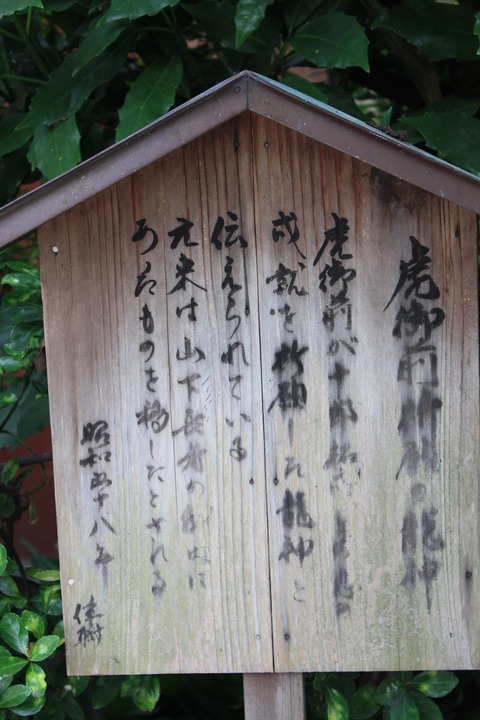 虎御前祈願の龍神
虎御前が十郎祐成
成就を祈願した龍神と
伝えられている
元来は山下長者の
あったものを移したとされる
昭和五十八年 佳樹